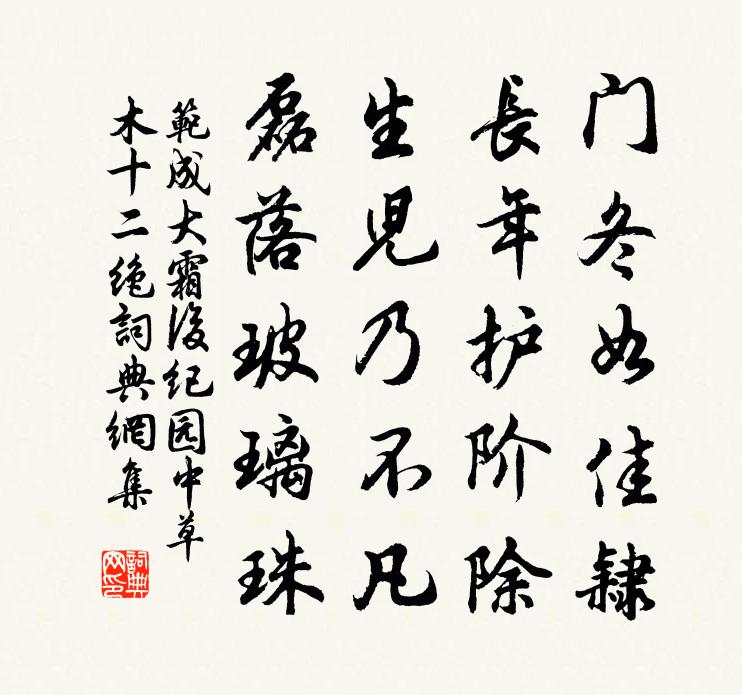 门冬如佳隸
長年护阶除
生児乃不凡
磊落玻璃珠
範成大霜後纪园中草
木十二绝詞典網集
詞典網印